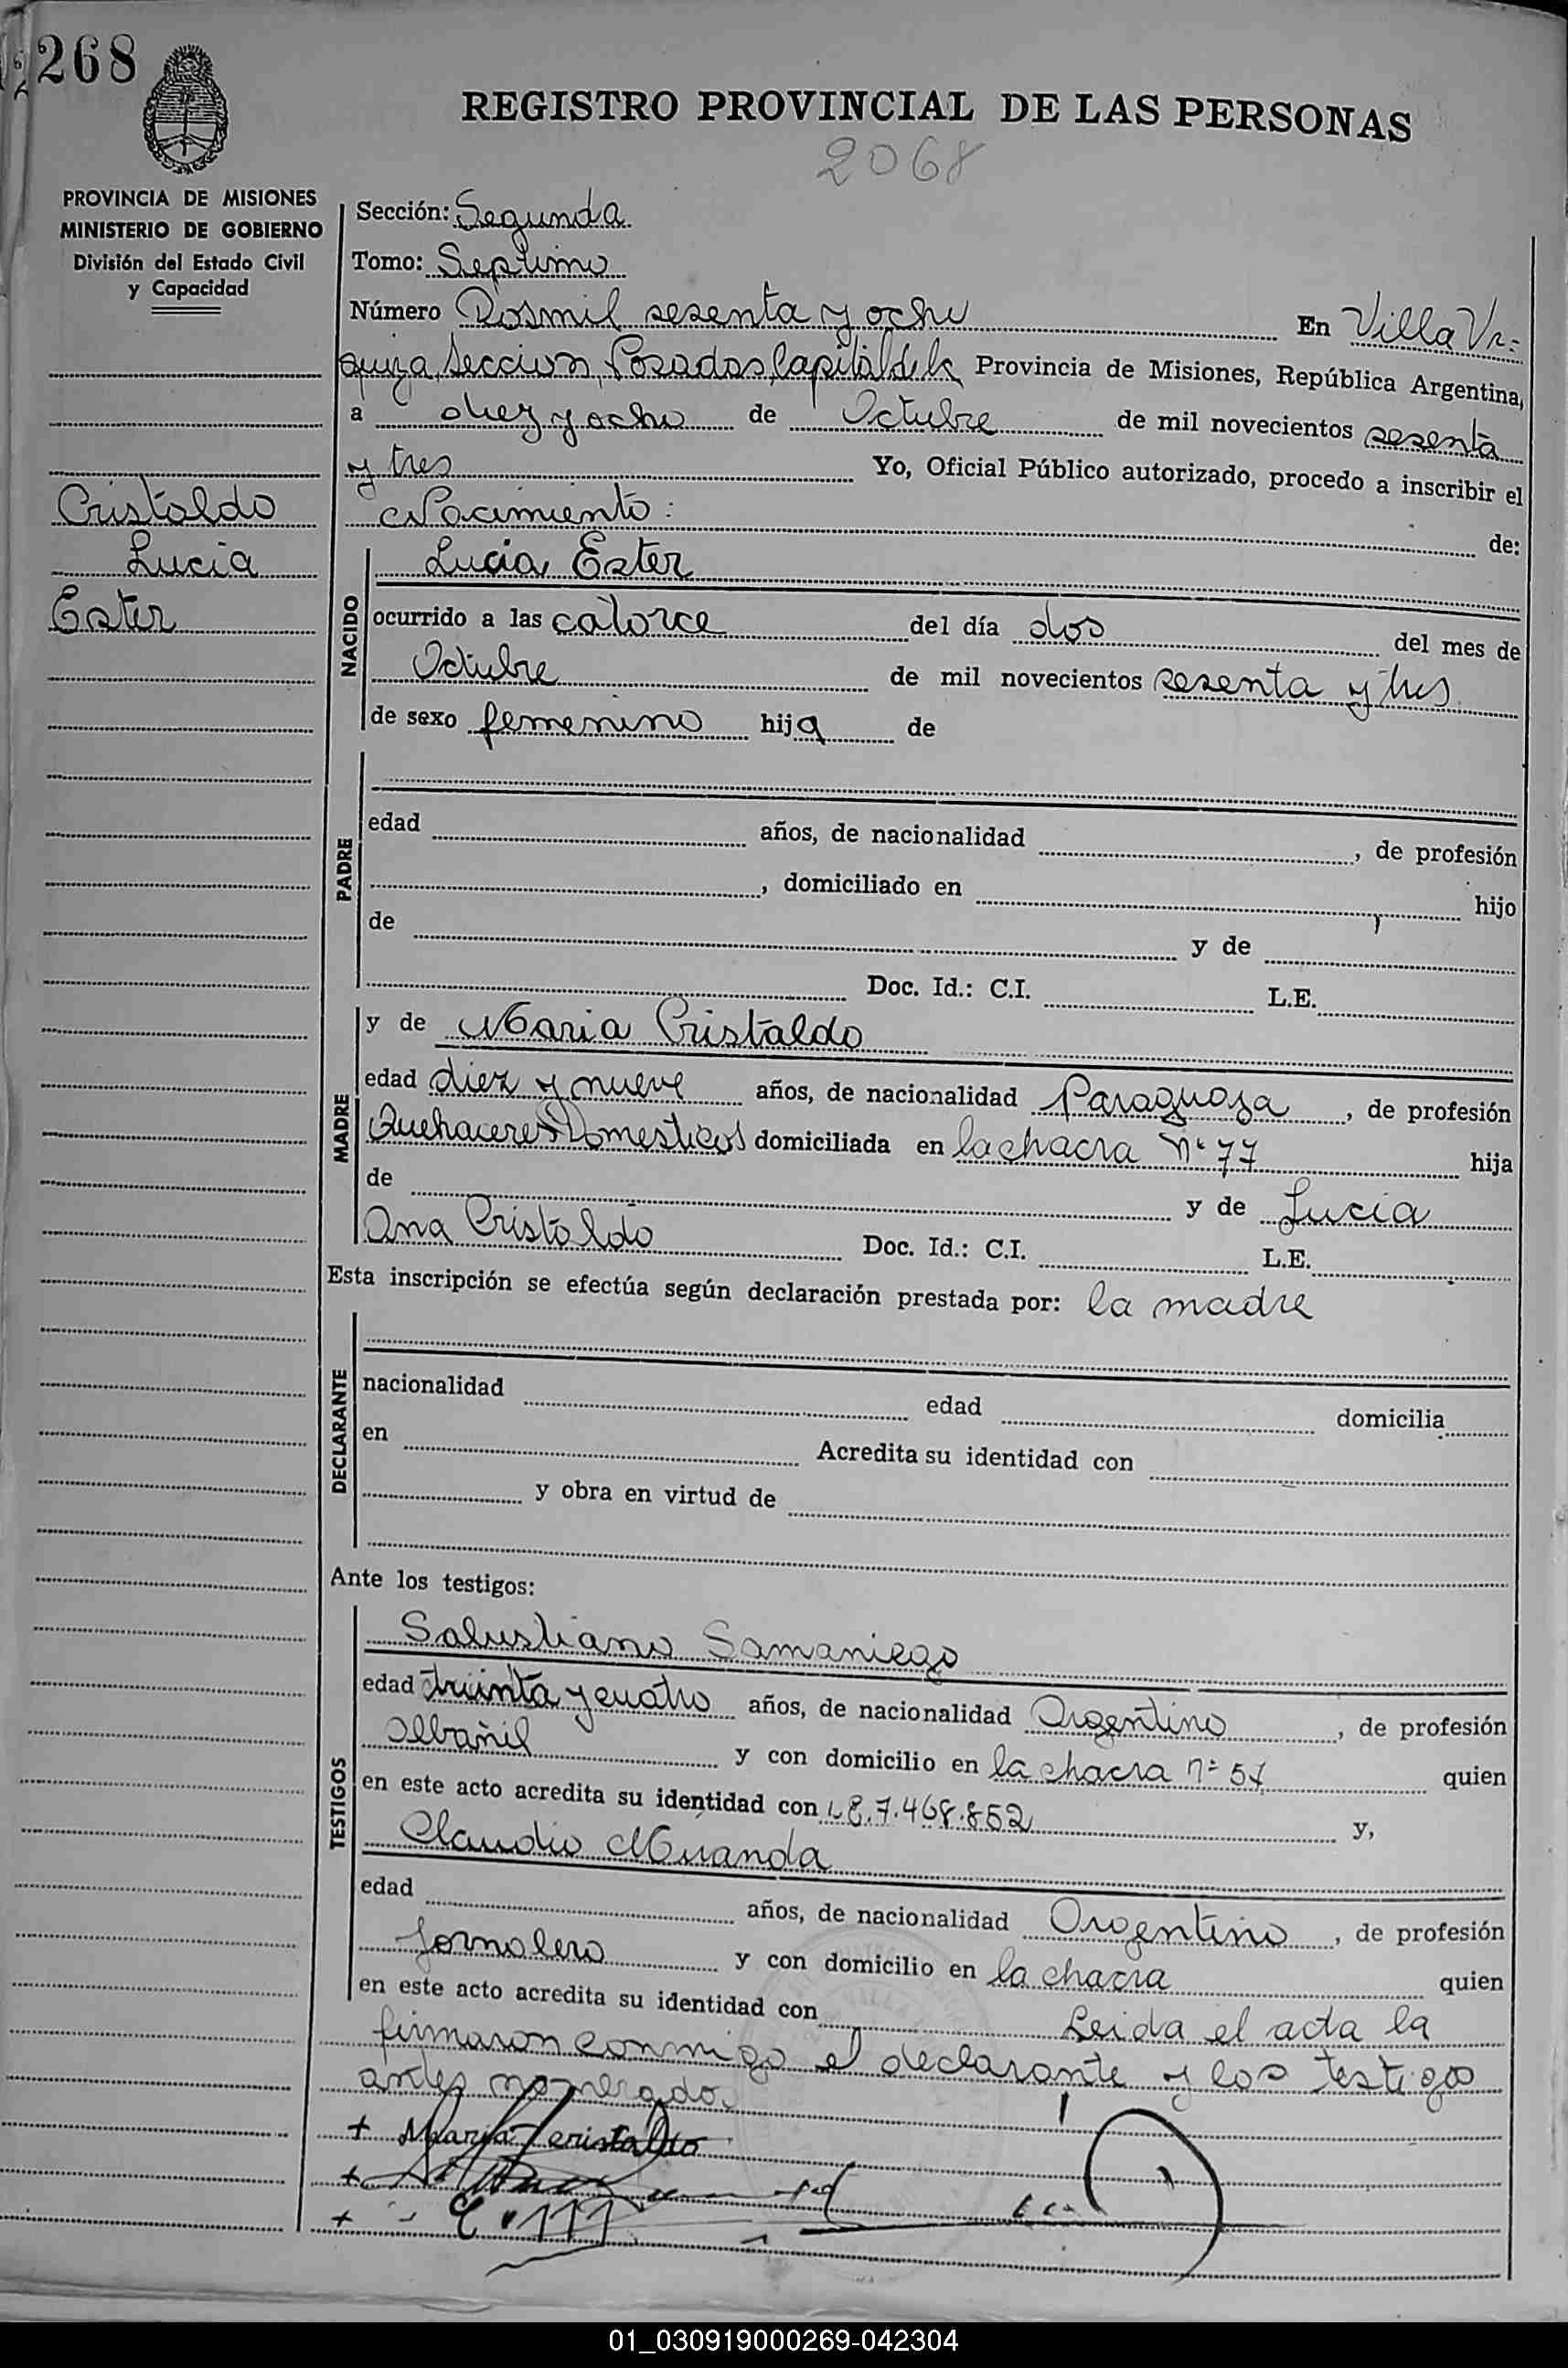 268
REGISTRO PROVINCIAL DE LAS PERSONAS
2068
PROVINCIA DE MISIONES
MINISTERIO DE GOBIERNO
División del Estado Civil
y Capacidad
Cristaldo
Lucia
Ester
Sección: Segunda
Tomo: Septimo
Número Dosmil sesenta y ocho En Villa Ur=
quiza, Seccion, Posadas, Capital de la Provincia de Misiones, República Argentina,
a diez y ocho de Octubre de mil novecientos sesenta
y tres Yo, Oficial Público autorizado, procedo a inscribir el
Nacimiento: de:
NACIDO
Lucia Ester
ocurrido a las catorce del día dos del mes de
Octubre de mil novecientos sesenta y tres
de sexo femenino hija de
PADRE
edad años, de nacionalidad , de profesión
, domiciliado en hijo
de y de
Doc. Id.: C.I. L.E.
MADRE
y de Maria Cristaldo
edad diez y nueve años, de nacionalidad Paraguaya , de profesión
Quehaceres Domesticos domiciliada en la chacra Nº 77 hija
de y de Lucia
Ana Cristaldo Doc. Id.: C.I. L.E.
Esta inscripción se efectúa según declaración prestada por: la madre
DECLARANTE
nacionalidad edad domicilia
en Acredita su identidad con
y obra en virtud de
Ante los testigos:
TESTIGOS
Salustiano Samaniego
edad treinta y cuatro años, de nacionalidad Argentino , de profesión
Albañil y con domicilio en la chacra nº 57 quien
en este acto acredita su identidad con L.E. 7.468.852 y,
Claudio Miranda
edad años, de nacionalidad Argentino , de profesión
Jornalero y con domicilio en la chacra quien
en este acto acredita su identidad con Leida el acta la
firmaron conmigo el declarante y los testigos
antes
+ Maria cristaldo
+
+
01_030919000269-042304